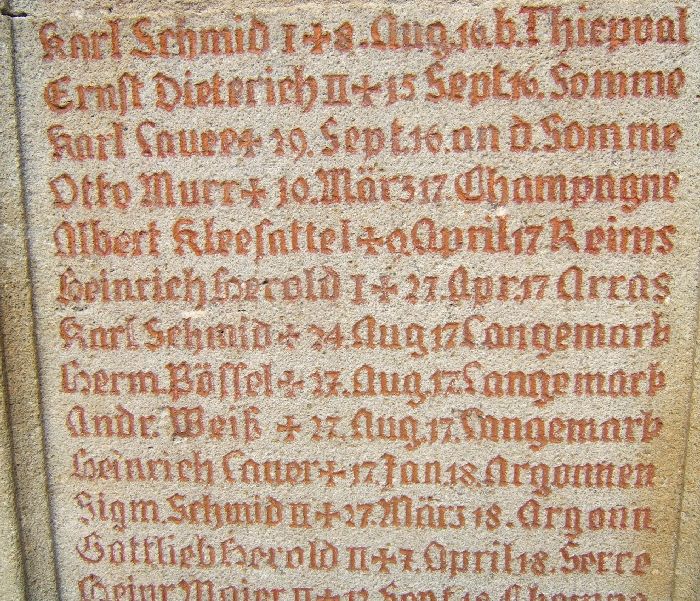 Karl Schmid I + 8. Aug. 16. b. Thiepval
Ernst Dieterich II + 15 Sept. 16. Somme
Karl Lauer + 29. Sept. 16. an d. Somme
Otto Murr + 30. März 17. Champagne
Albert Kleesattel + 9. April 17 Reims
Heinrich Herold I + 27. Apr. 17 Arras
Karl Schmid + 24 Aug 17 Langemark
Herm. Pössel + 27. Aug. 17. Langemark
Andr. Weiß + 27. Aug. 17. Langemark
Heinrich Lauer + 17. Jan. 18. Argonnen
Sigm. Schmid II + 27. März 18. Argonn
Gottlieb Herold II + 7. April 18. Serre
Heinr. Maier II +